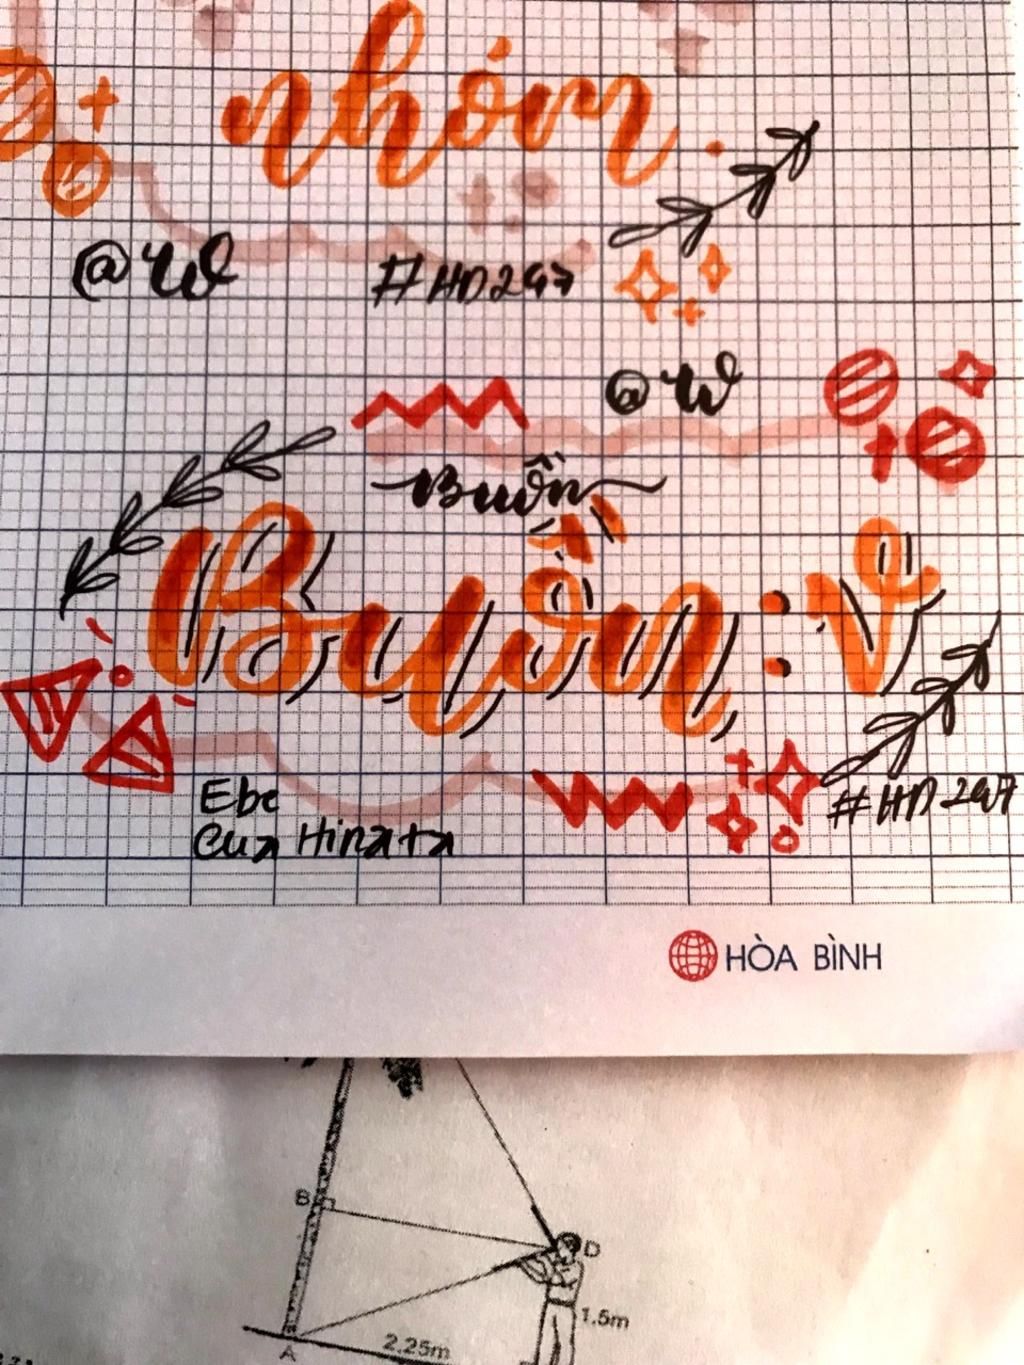 nhóm.
@W #HD247
@W
Buồn
Buồn : v
Ebe
Của Hinata
#HD247
HÒA BÌNH
B
D
1.5m
2.25m
A